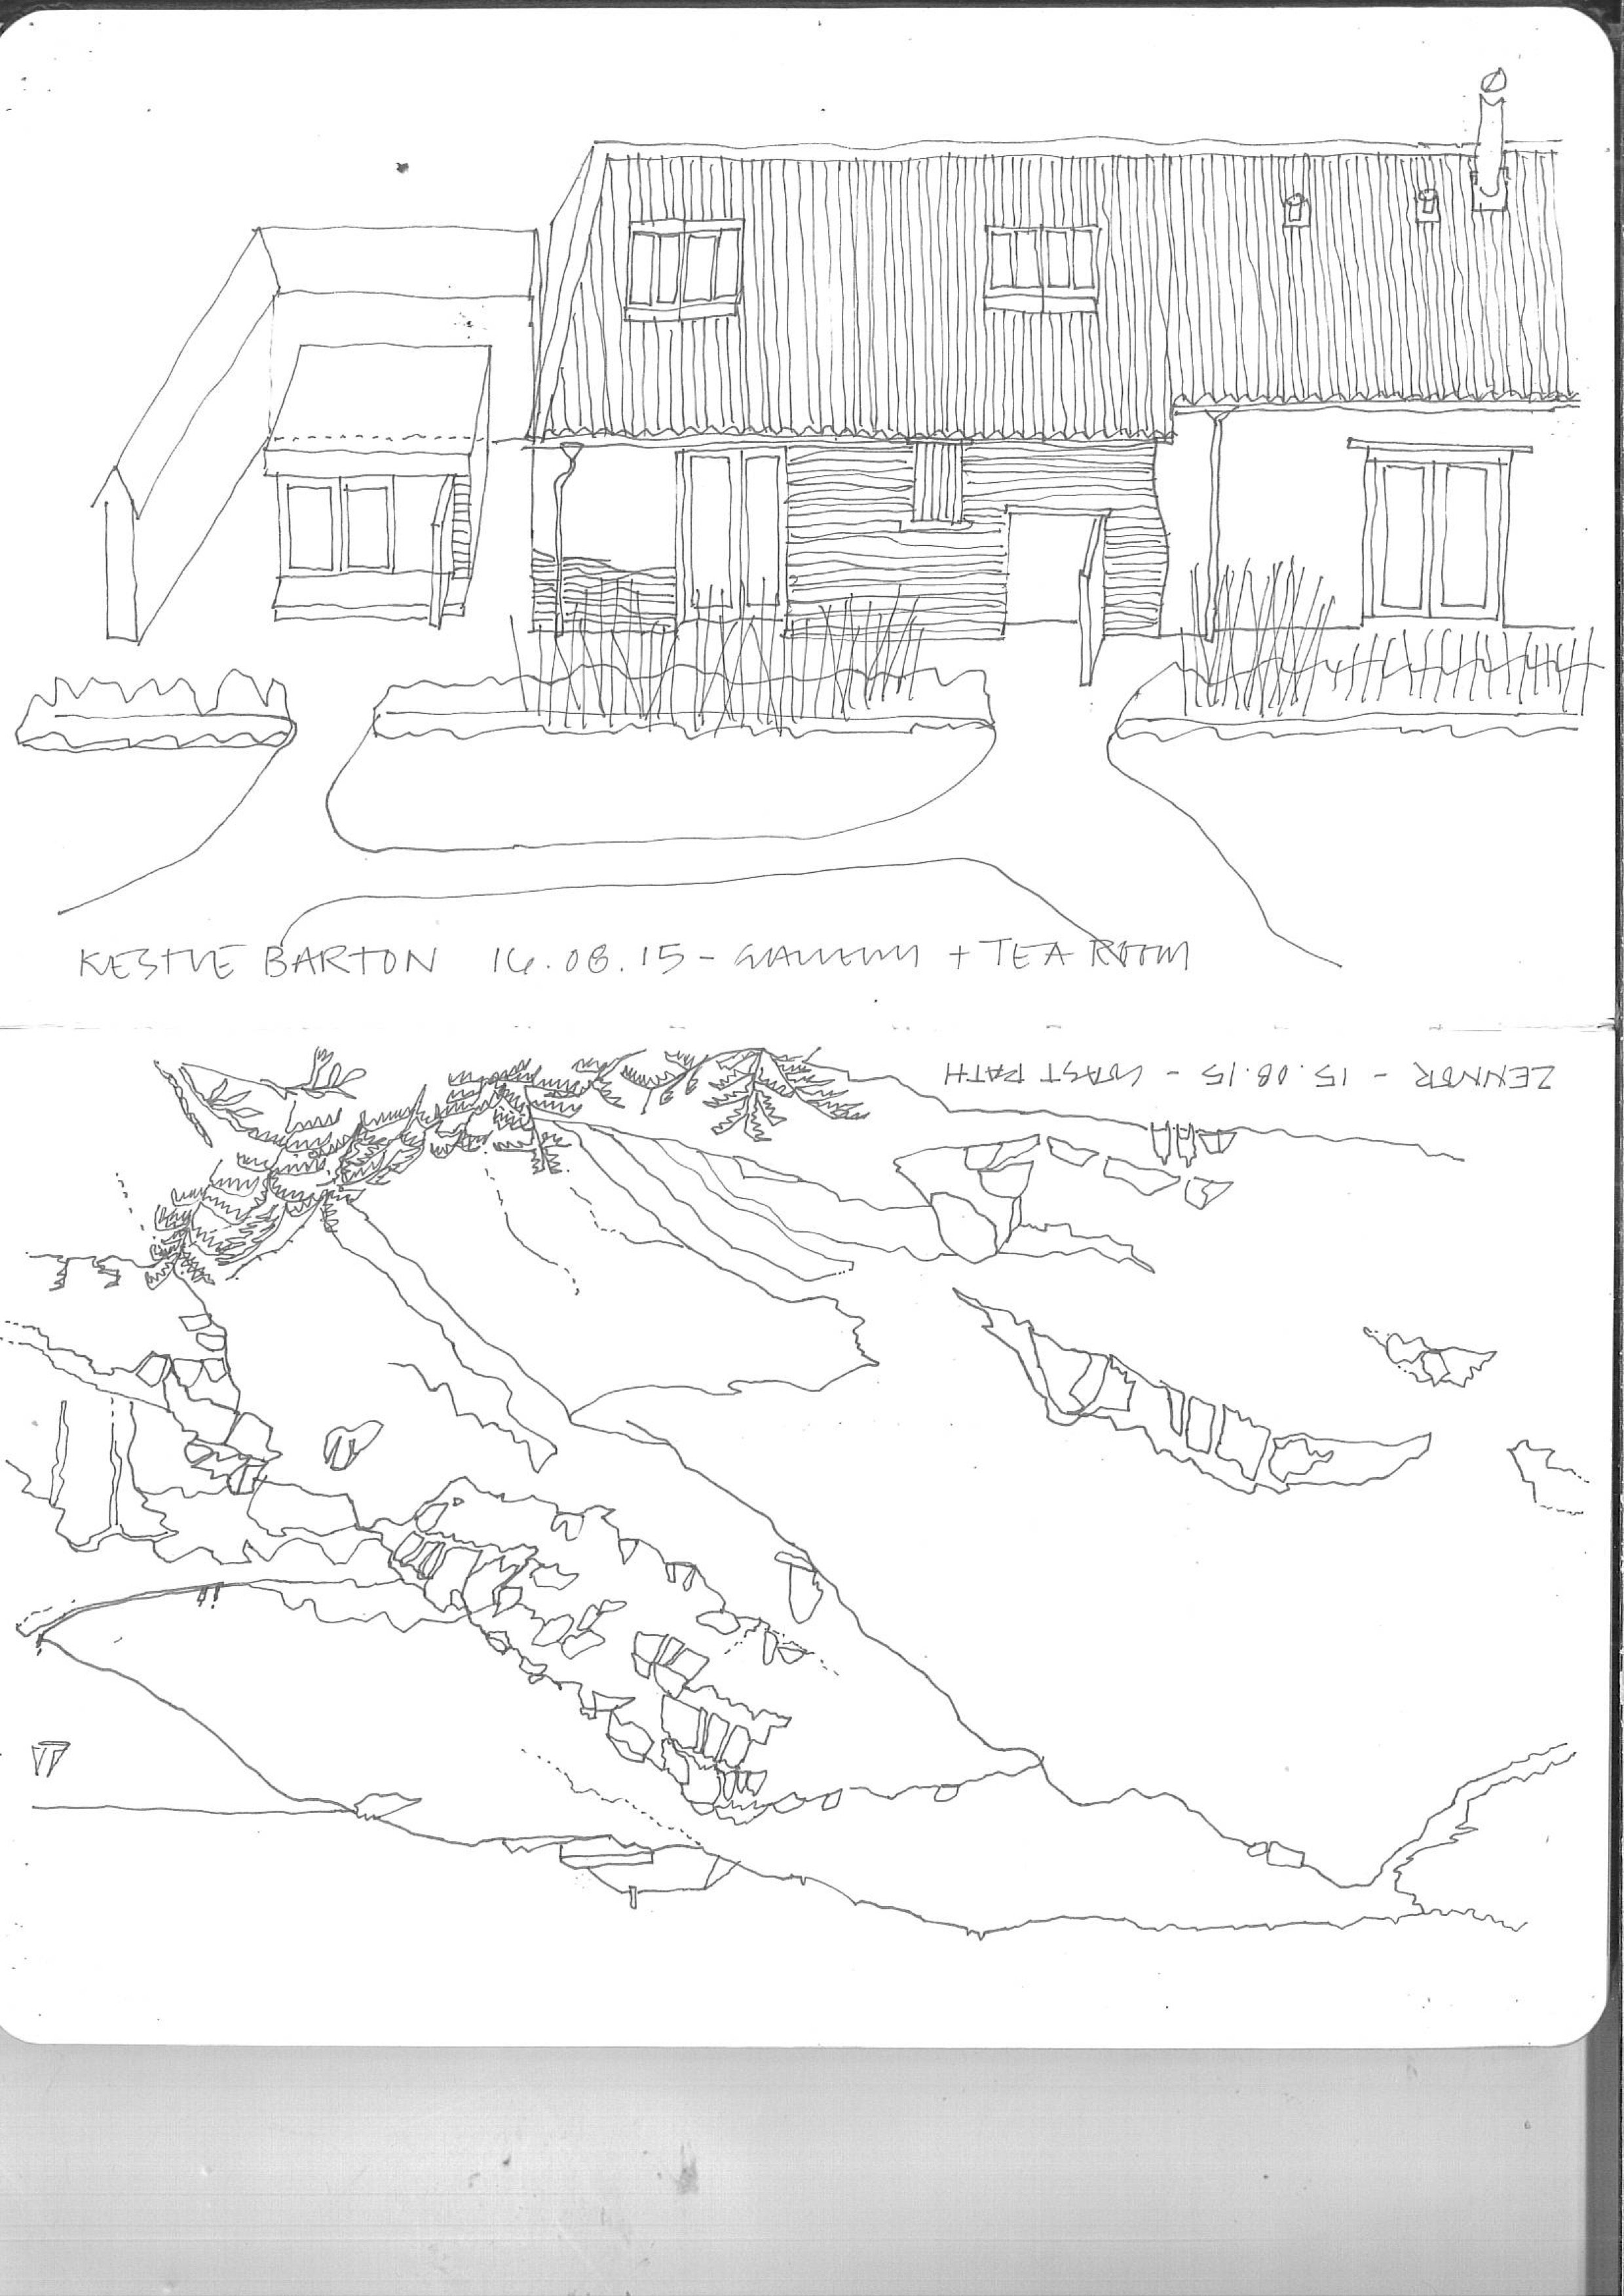 KESTLE BARTON 16.08.15 - GALLERY + TEA ROOM
ZENNOR - 15.08.15 - COAST PATH